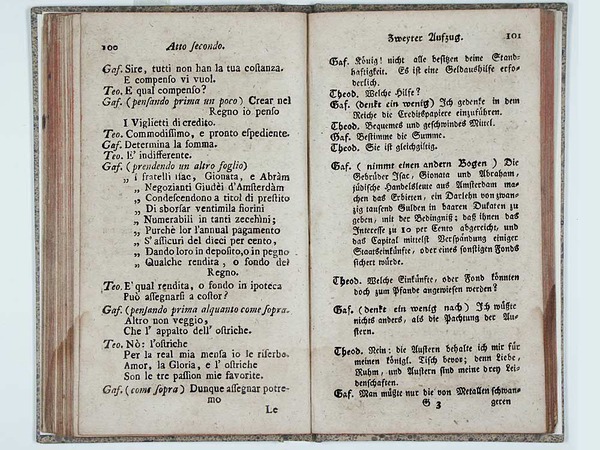 100 Atto secondo.
Gaf. Sire, tutti non han la tua costanza.
E compenso vi vuol.
Teo. E qual compenso?
Gaf. (pensando prima un poco) Crear nel
Regno io penso
I Viglietti di credito.
Teo. Commodissimo, e pronto espediente.
Gaf. Determina la somma.
Teo. E' indifferente.
Gaf. (prendendo un altro foglio)
„ i fratelli Isac, Gionata, e Abràm
„ Negozianti Giudèi d'Amsterdàm
„ Condescendono a titol di prestito
„ Di sborsar ventimila fiorini
„ Numerabili in tanti zecchini;
„ Purchè lor l'annual pagamento
„ S' assicuri del dieci per cento,
„ Dando loro in deposito, o in pegno
„ Qualche rendita, o fondo del
Regno.
Teo. E' qual rendita, o fondo in ipoteca
Può assegnarsi a costor?
Gaf. (pensando prima alquanto come sopra.
Altro non veggio,
Che l' appalto dell' ostriche.
Teo. Nò: l'ostriche
Per la real mia mensa io le riserbo.
Amor, la Gloria, e l' ostriche
Son le tre passion mie favorite.
Gaf. (come sopra) Dunque assegnar potre-
mo
Le
Zweyter Aufzug. 101
Gaf. König! nicht alle besitzen deine Stand-
haftigkeit. Es ist eine Geldaushilfe erfo-
derlich.
Theod. Welche Hilfe?
Gaf. (denkt ein wenig) Ich gedenke in dem
Reiche die Creditspapiere einzuführen.
Theod. Bequemes und geschwindes Mittel.
Gaf. Bestimme die Summe.
Theod. Sie ist gleichgiltig.
Gaf. ( nimmt einen andern Bogen ) Die
Gebrüder Isac, Gionata und Abraham,
jüdische Handelsleute aus Amsterdam ma-
chen das Erbieten, ein Darlehn von zwan-
zig tausend Gulden in baaren Dukaten zu
geben, mit der Bedingniß; daß ihnen das
Interesse zu 10 per Cento abgereicht, und
das Capital mittelst Verpfändung einiger
Staatseinkünfte, oder eines sonstigen Fonds
sichert würde.
Theod. Welche Einkünfte, oder Fond könnten
doch zum Pfande angewiesen werden?
Gaf. (denkt ein wenig nach) Ich wüßte
nichts anders, als die Pachtung der Au-
stern.
Theod. Nein: die Austern behalte ich mir für
meinen königl. Tisch bevor; denn Liebe,
Ruhm, und Austern sind meine drey Lei-
denschaften.
Gaf. Man müßte nur die von Metallen schwan-
G 3 geren